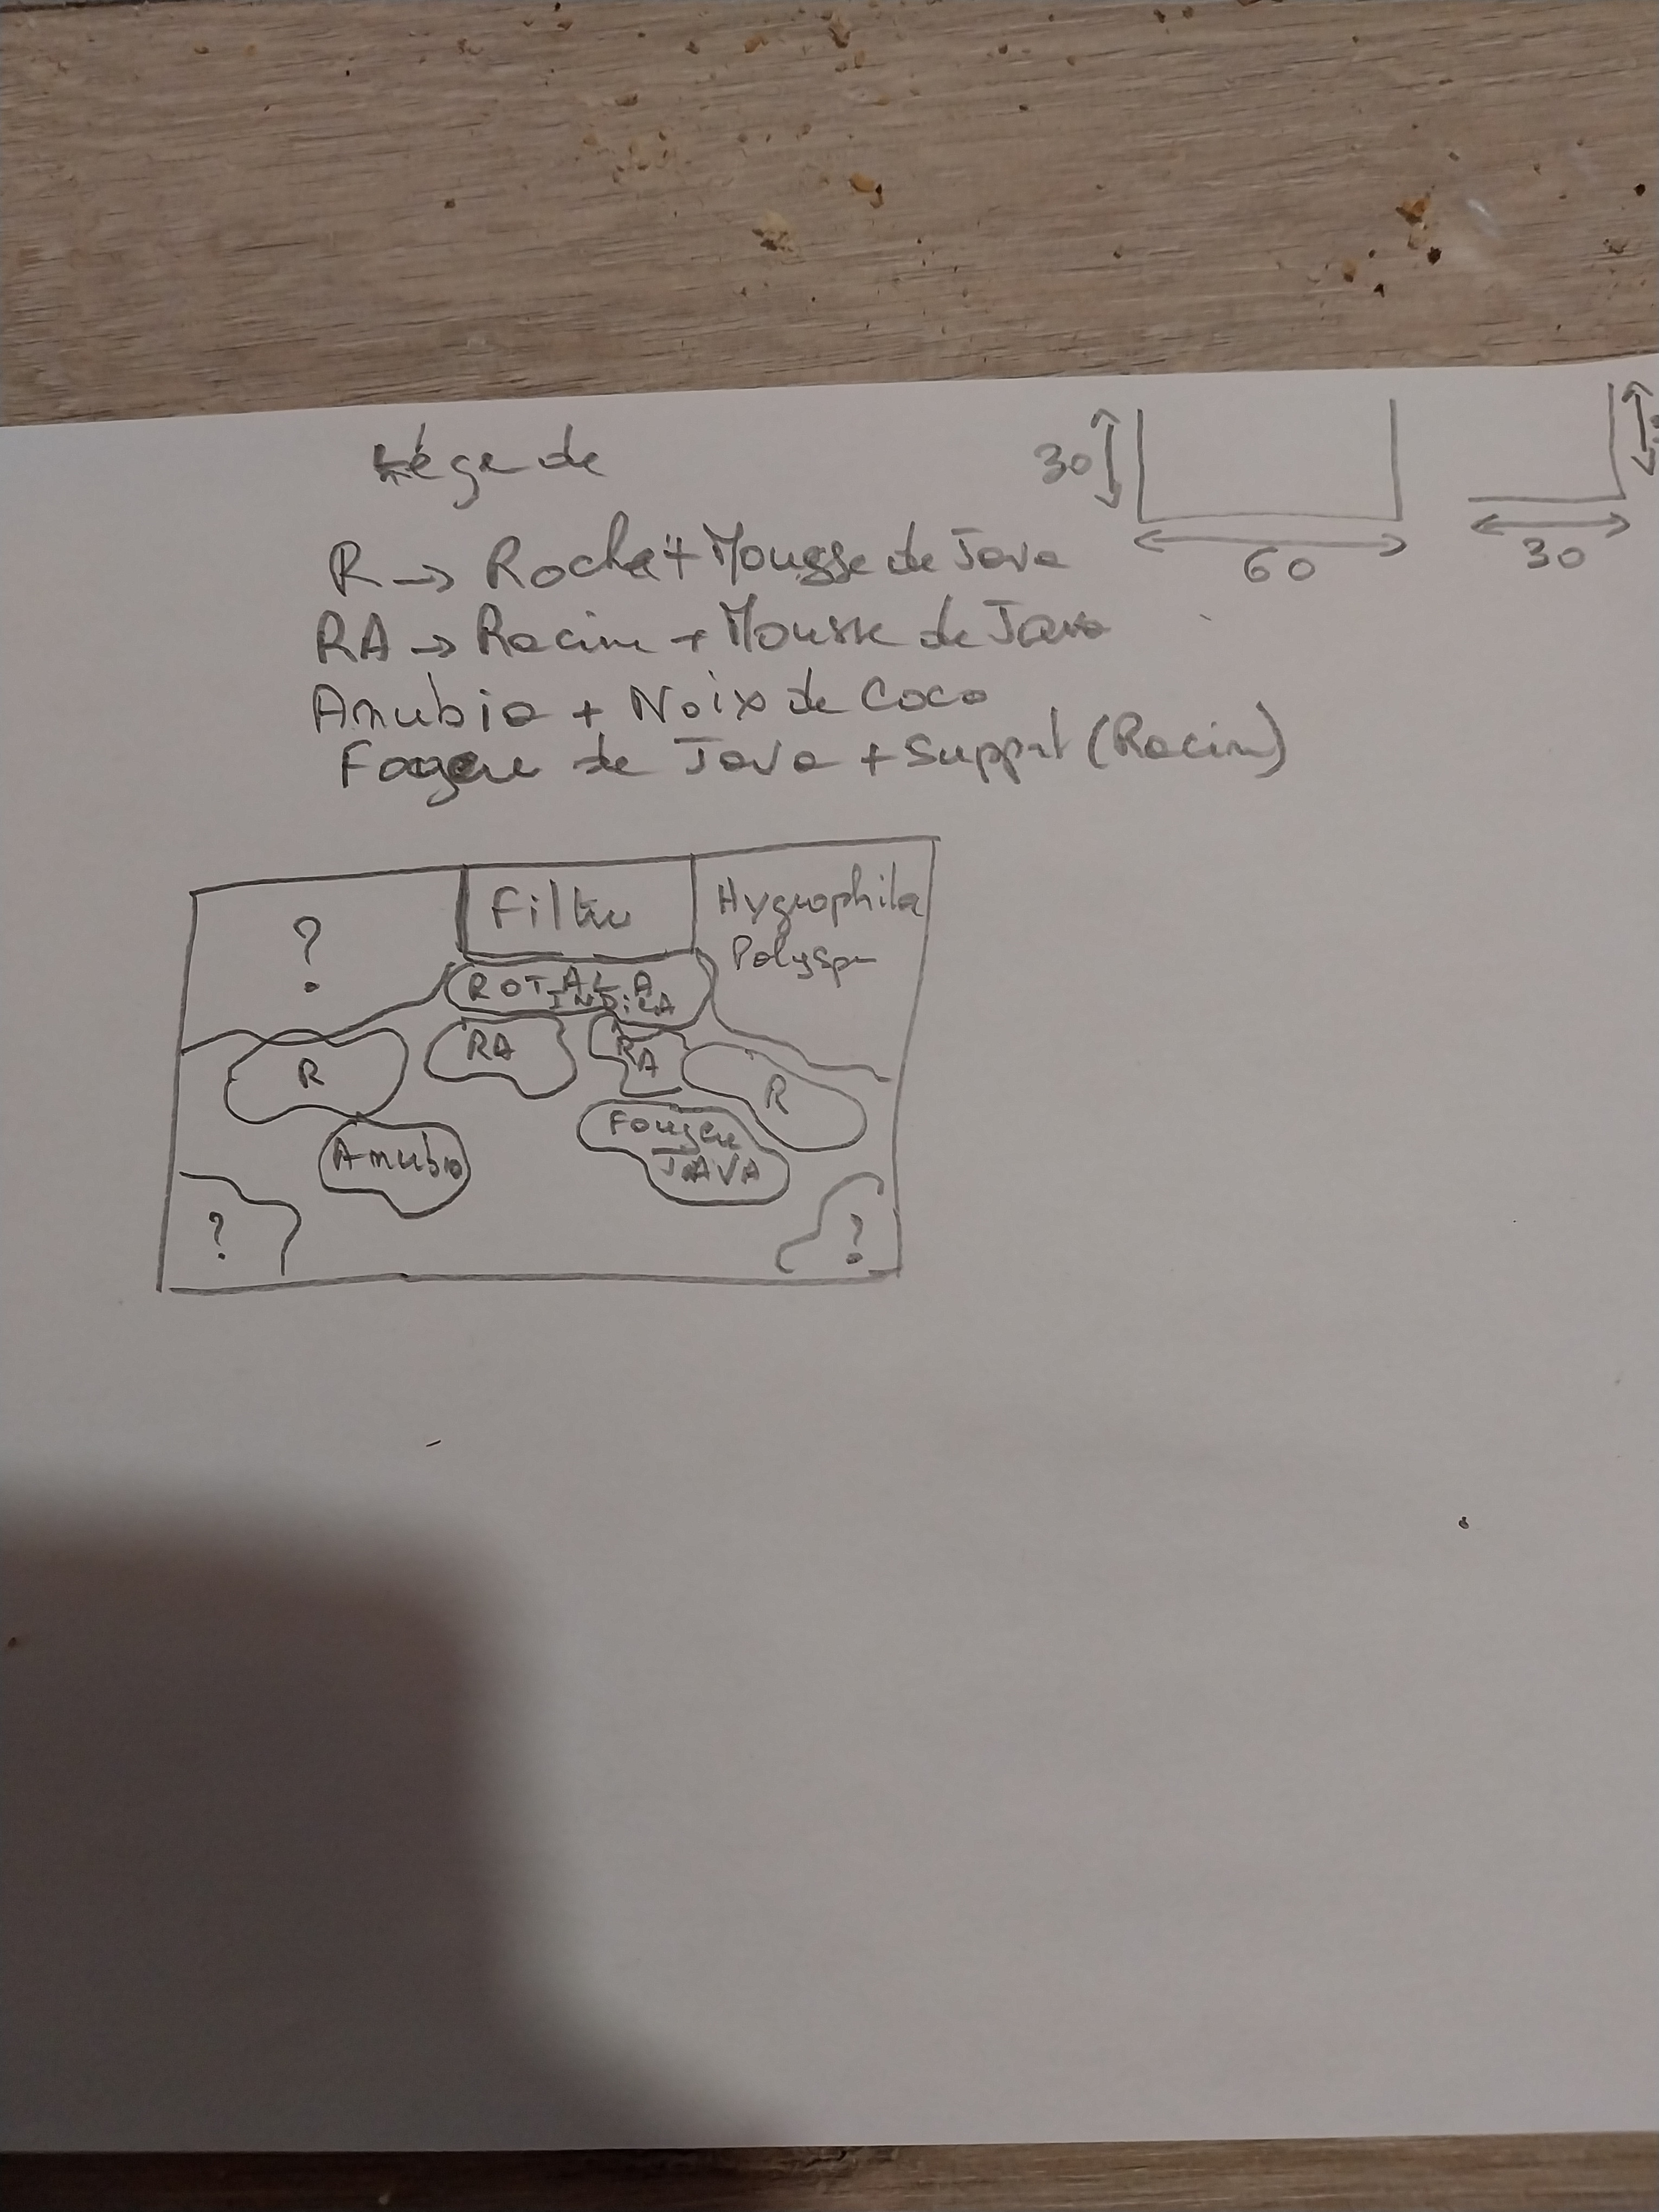 Légende
30
60
30
R → Roche + Mousse de Java
RA → Racine + Mousse de Java
Anubia + Noix de Coco
Fougere de Java + Support (Racine)
?
Filtre
Hygrophila
Polysper
ROTALA
INDICA
R
RA
RA
R
Anubia
Fougere
JAVA
?
?